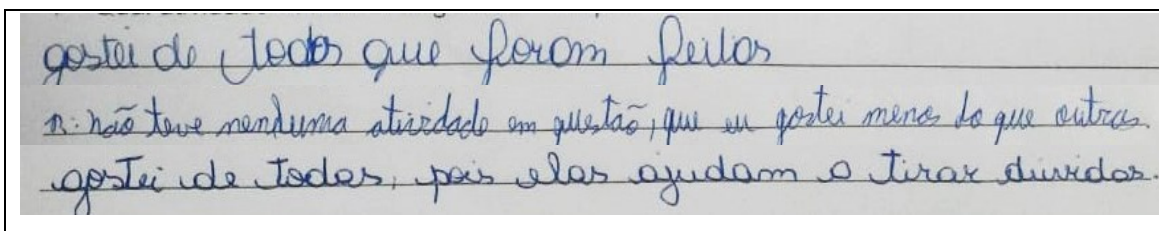 gostei de todas que foram feitas
R: não teve nenhuma atividade em questão, que eu gostei menos do que outras.
gostei de todas, pois elas ajudam a tirar dúvidas.